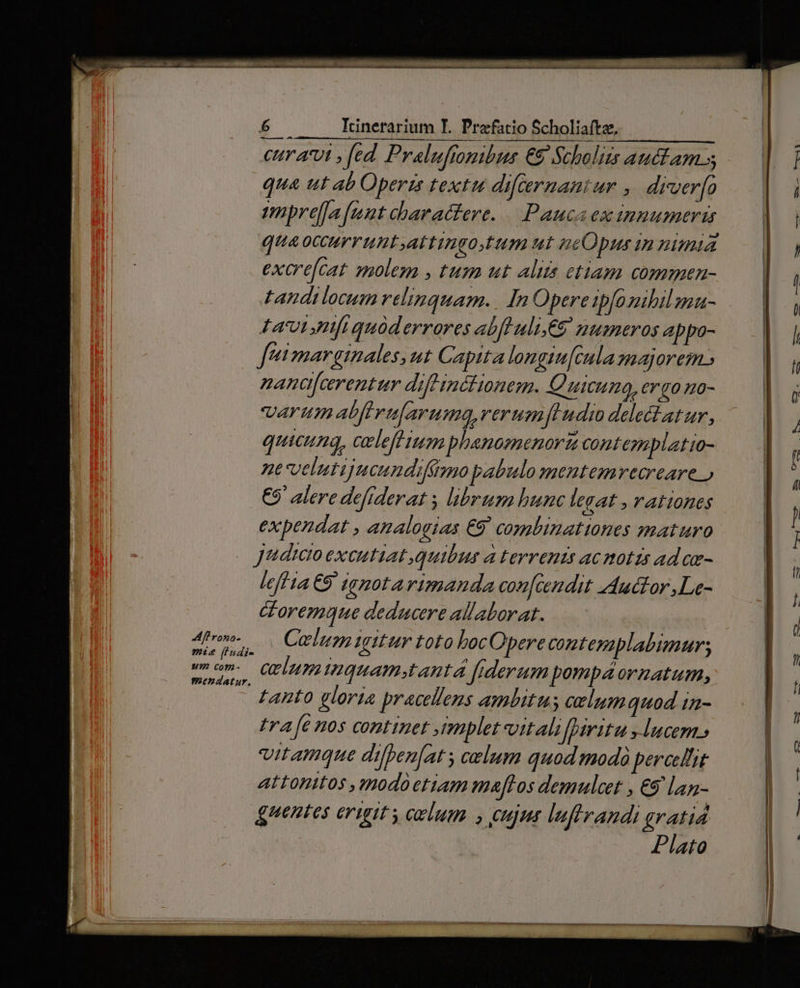 6 Itinerarium I. Præfatio Scholiaſtæ.
curavi, ſed Præluſionibus & Scholiis auctam;
quæ ut ab Operis textu diſcernantur, diverſo
impreſſa ſunt charactere. Pauca ex innumeris
quæ occurrunt, attingo, tum ut ne Opus in nimiã
excreſcat molem, tum ut aliis etiam commen-
tandi locum relinquam. In Opere ipſo nihil mu-
tavi, niſi quòd errores abſtuli, & numeros appo-
ſui marginales, ut Capita longiuſcula majorem
nanciſcerentur diſtinctionem. Quicunq, ergo no-
varum abſtruſarumq, rerum ſtudio delectatur,
quicunq, cœleſtium phænomenorũ contemplatio-
ne velut jucundiſſimo pabulo mentem recreare,
& alere deſiderat; librum hunc legat, rationes
expendat, analogias & combinationes maturo
judicio excutiat, quibus à terrenis ac notis ad cœ-
leſtia & ignota rimanda conſcendit Auctor, Le-
ctoremque deducere allaborat.
Aſtrono-
miæ ſtudi-
um com-
mendatur.
Cœlum igitur toto hoc Opere contemplabimur;
cœlum inquam, tantâ ſiderum pompâ ornatum,
tanto gloriæ præcellens ambitu; cœlum quod in-
tra ſe nos continet, implet vitali ſpiritu, lucem
vitamque diſpenſat; cœlum quod modò percellit
attonitos, modò etiam mæſtos demulcet, & lan-
guentes erigit; cœlum, cujus luſtrandi gratiâ
Plato